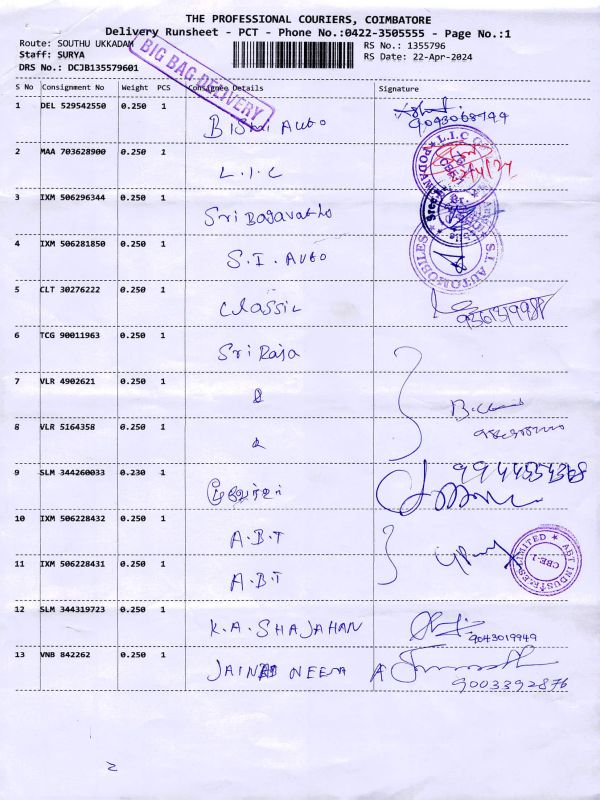 THE PROFESSIONAL COURIERS, COIMBATORE
Delivery Runsheet - PCT - Phone No.:0422-3505555 - Page No.:1
Route: SOUTHU UKKADAM RS No.: 1355796
Staff: SURYA RS Date: 22-Apr-2024
DRS No.: DCJB135579601
BIG BAG DELIVERY
S No Consignment No Weight PCS Consignee Details Signature
1 DEL 529542550 0.250 1 Bismi Auto
2 MAA 703628900 0.250 1 L.I.C
3 IXM 506296344 0.250 1 Sri Bagavathi
4 IXM 506281850 0.250 1 S.I. Auto
S.I. AUTOMOBILES
5 CLT 30276222 0.250 1 Classic
6 TCG 90011963 0.250 1 Sri Raja
7 VLR 4902621 0.250 1
8 VLR 5164358 0.250 1
9 SLM 344260033 0.230 1
10 IXM 506228432 0.250 1 A.B.T
11 IXM 506228431 0.250 1 A.B.T
ABT INDUSTRIES LIMITED
CBE-1
12 SLM 344319723 0.250 1 K.A. SHAJAHAN 9043019949
13 VNB 842262 0.250 1 JAIN NEENA 9003392876
2